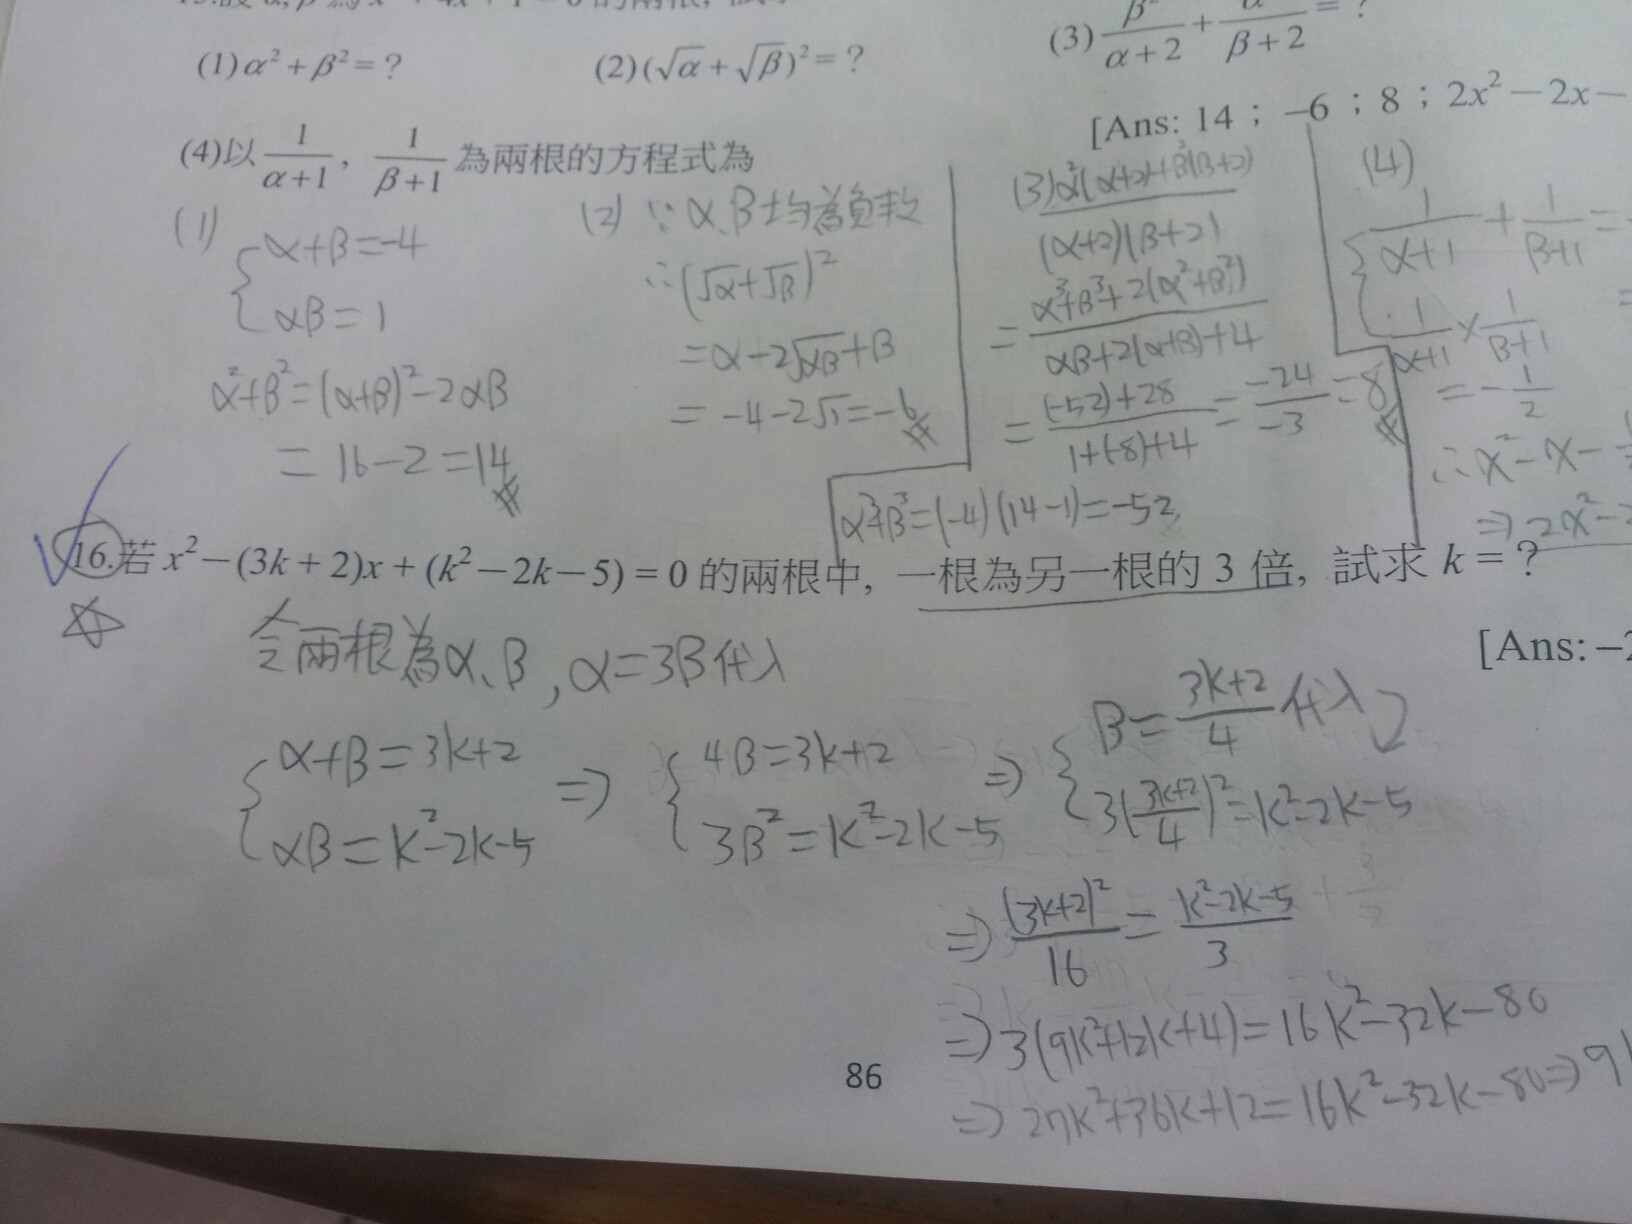 (1) α² + β² = ?
(2) (√α + √β)² = ?
(3) β²/(α+2) + α²/(β+2) = ?
[Ans: 14 ; −6 ; 8 ; 2x² − 2x −
(4)以 1/(α+1), 1/(β+1) 為兩根的方程式為
(1)
{ α+β=-4
αβ=1
α²+β²=(α+β)²-2αβ
=16-2=14
(2) ∵α、β均為負數
∴(√α+√β)²
=α-2√αβ+β
=-4-2√1=-6
(3) α²(α+2)+β²(β+2)
(α+2)(β+2)
= (α³+β³+2(α²+β²))/(αβ+2(α+β)+4)
= ((-52)+28)/(1+(-8)+4) = -24/-3 = 8
α³+β³=(-4)(14-1)=-52
(4)
{ 1/(α+1) + 1/(β+1) =
1/(α+1) × 1/(β+1)
= -1/2
∴x²-x-
⇒2x²-
16.若 x² − (3k + 2)x + (k² − 2k − 5) = 0 的兩根中, 一根為另一根的 3 倍, 試求 k = ?
[Ans: −2
令兩根為α、β, α=3β代入
{ α+β=3k+2
αβ=k²-2k-5
⇒ { 4β=3k+2
3β²=k²-2k-5
⇒ { β=(3k+2)/4 代入
3((3k+2)/4)²=k²-2k-5
⇒ (3k+2)²/16 = (k²-2k-5)/3
⇒ 3(9k²+12k+4)=16k²-32k-80
⇒ 27k²+36k+12=16k²-32k-80⇒
86